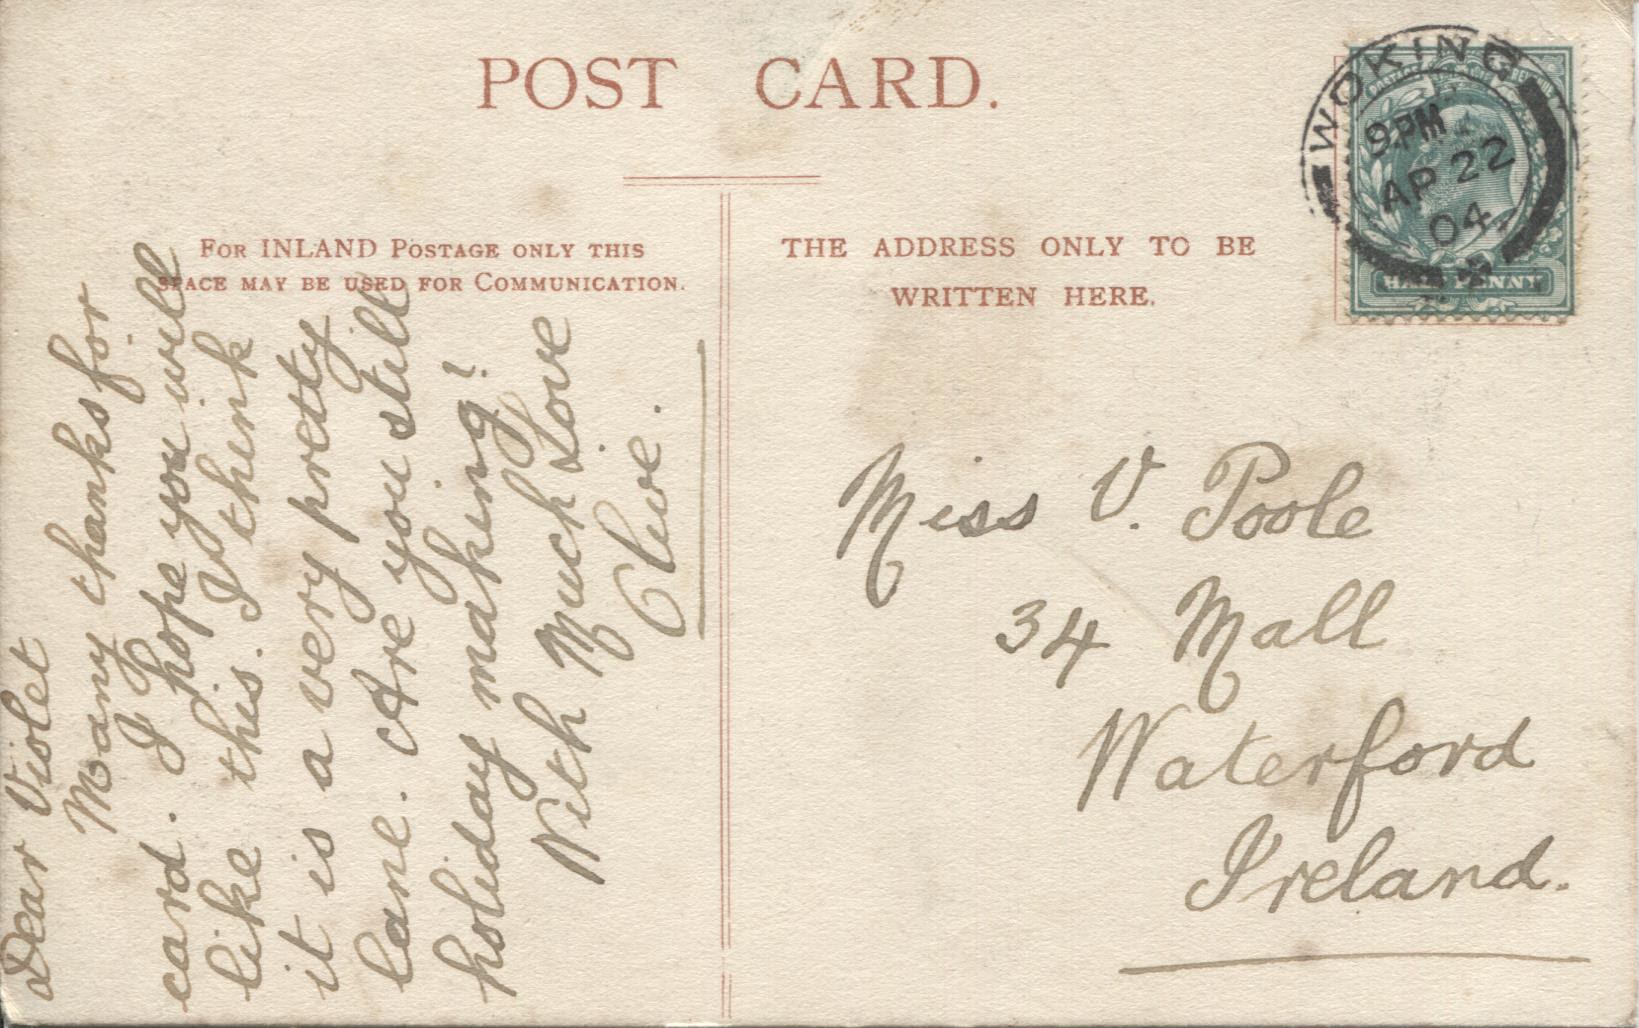 POST CARD.
FOR INLAND POSTAGE ONLY THIS
SPACE MAY BE USED FOR COMMUNICATION.
THE ADDRESS ONLY TO BE
WRITTEN HERE.
WOKING
9.PM
AP 22
04
HALF PENNY
Dear Violet
Many thanks for
card. I hope you will
like this. I think
it is a very pretty
lane. Are you still
holiday making?
With Much Love
Clive.
Miss V. Poole
34 Mall
Waterford
Ireland.